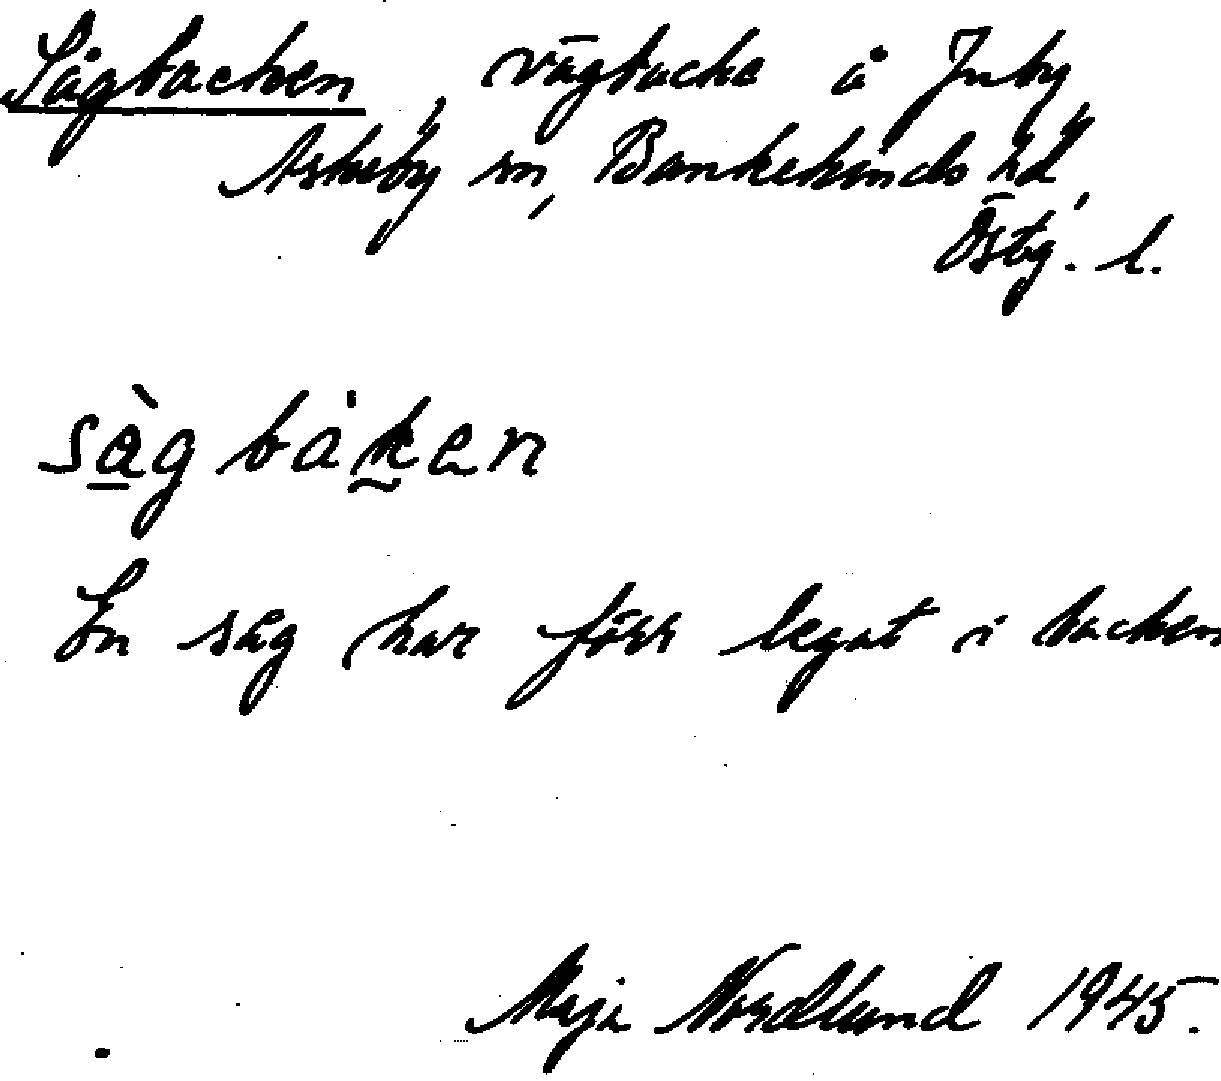 Sågbacken, vägbacke å Juby,
Askeby sn, Bankekinds hd,
Östg. l.
så̀g bȧken
En såg har förr legat i backen
Maja Nordlund 1945.